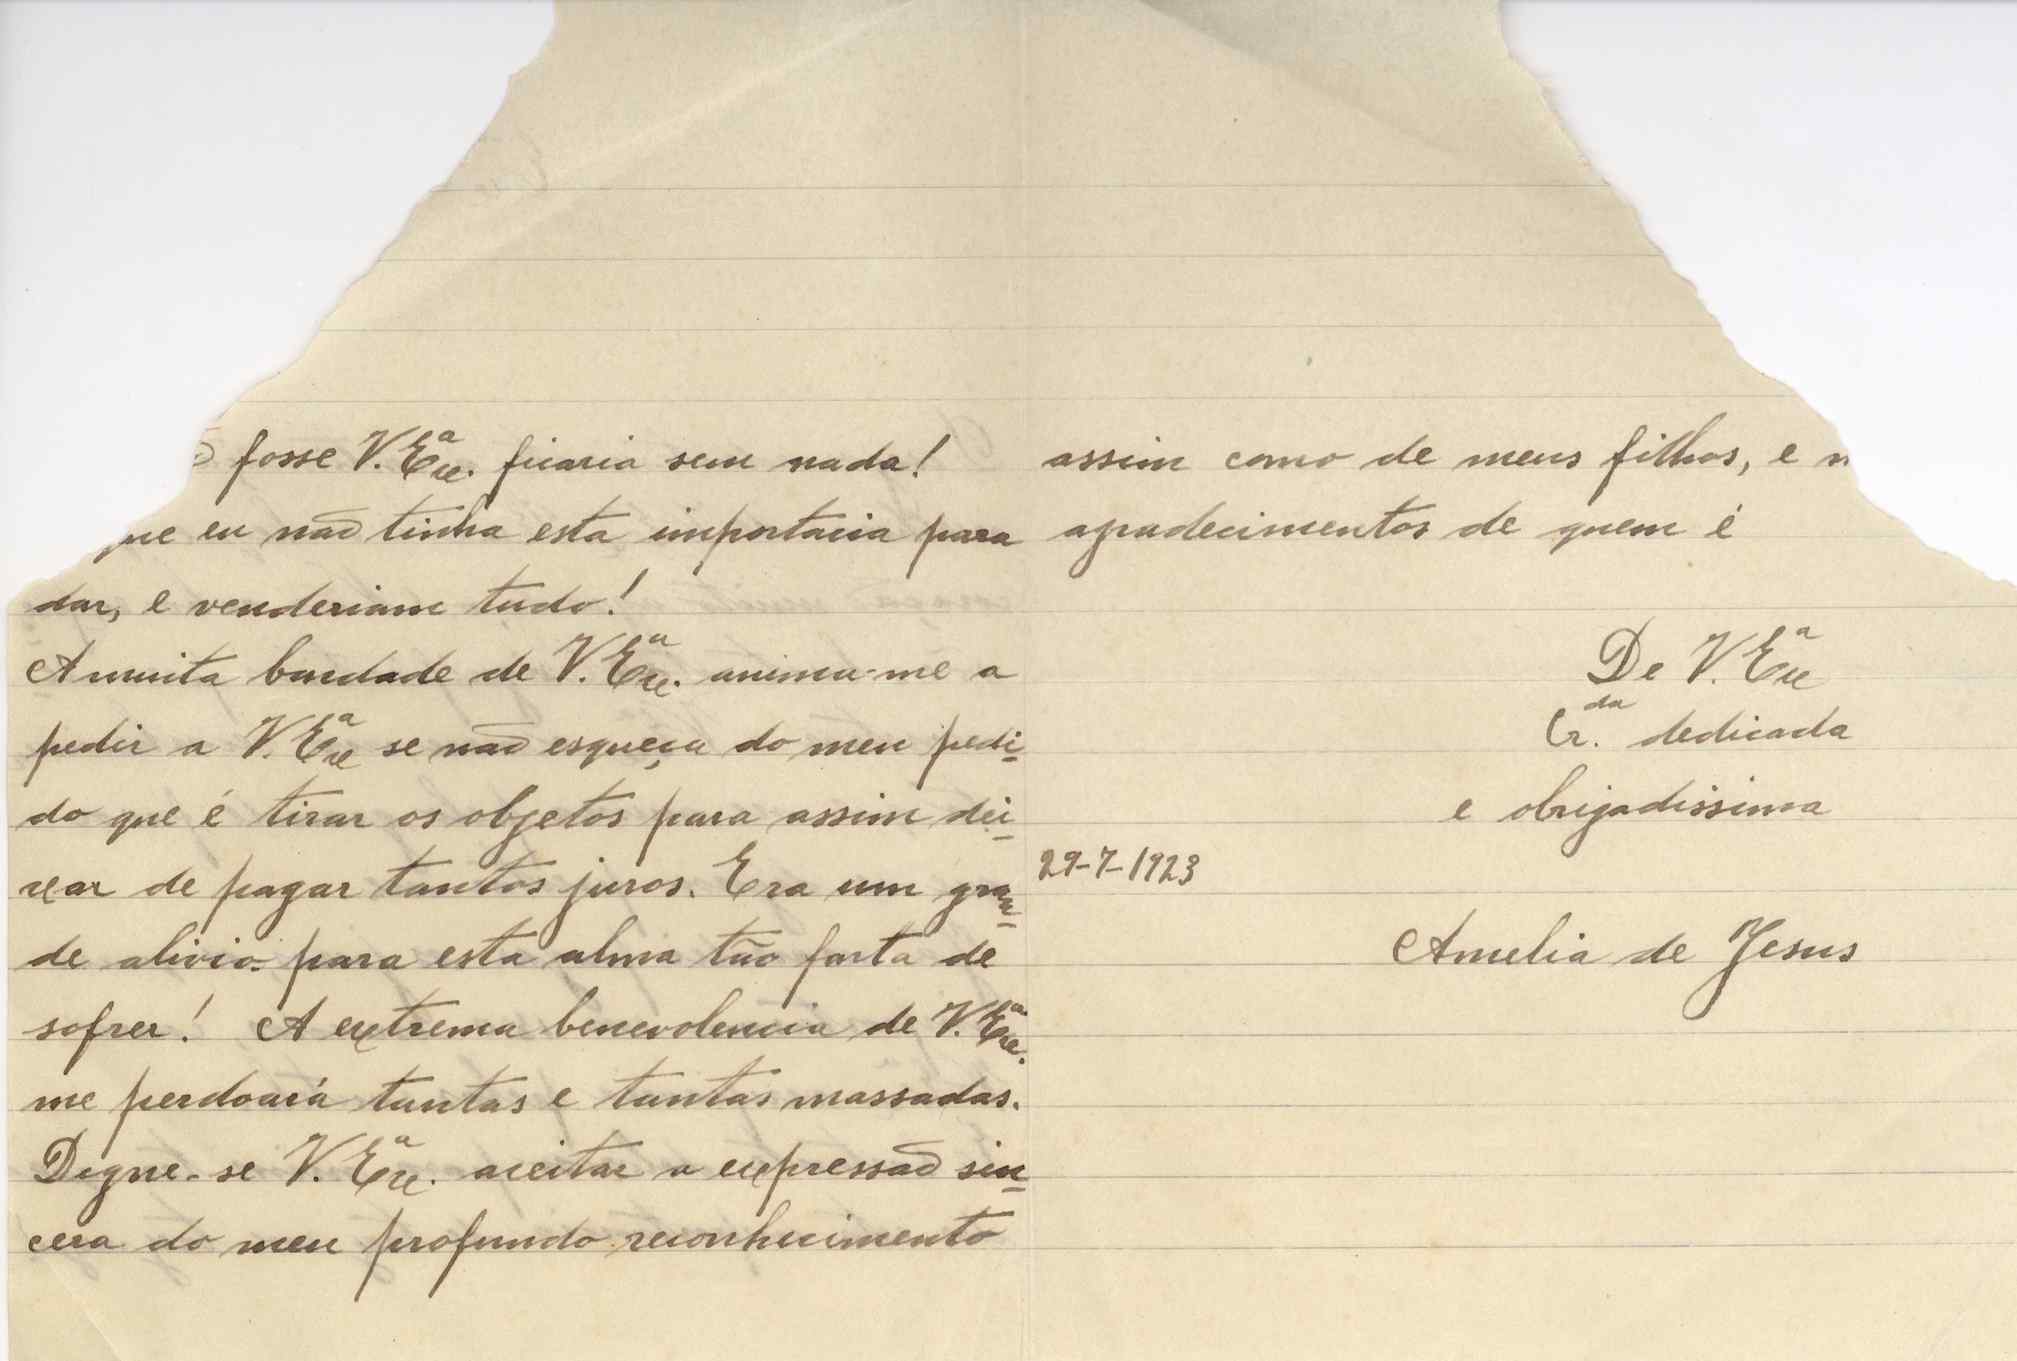 fosse V. Exª. ficaria sem nada!
que eu não tinha esta importacia para
dar, e venderiam tudo!
A muita bondade de V. Exª. anima-me a
pedir a V. Exª se não esqueça do meu pedi-
do que é tirar os objetos para assim dei-
xar de pagar tantos juros. Era um gran-
de alivio para esta alma tão farta de
sofrer! A extrema benevolencia de V. Exª.
me perdoará tantas e tantas massadas.
Digne-se V. Exª. aceitar a expressão sin-
cera do meu profundo reconhecimento
assim como de meus filhos, e
agradecimentos de quem é
De V. Exª
Cr.da dedicada
e obrigadissima
29-7-1923
Amelia de Jesus